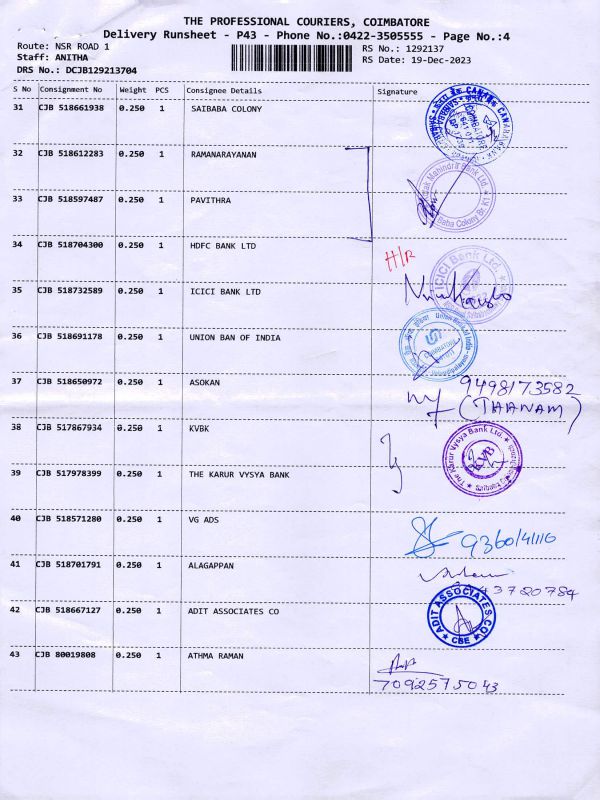 THE PROFESSIONAL COURIERS, COIMBATORE
Delivery Runsheet - P43 - Phone No.:0422-3505555 - Page No.:4
Route: NSR ROAD 1
RS No.: 1292137
Staff: ANITHA
RS Date: 19-Dec-2023
DRS No.: DCJB129213704
S No Consignment No Weight PCS Consignee Details Signature
31 CJB 518661938 0.250 1 SAIBABA COLONY
32 CJB 518612283 0.250 1 RAMANARAYANAN
33 CJB 518597487 0.250 1 PAVITHRA
34 CJB 518704300 0.250 1 HDFC BANK LTD
H/R
35 CJB 518732589 0.250 1 ICICI BANK LTD
ICICI Bank Ltd.
36 CJB 518691178 0.250 1 UNION BAN OF INDIA
37 CJB 518650972 0.250 1 ASOKAN
9498173582
(THANAM)
38 CJB 517867934 0.250 1 KVBK
The Karur Vysya Bank Ltd.
KVB
39 CJB 517978399 0.250 1 THE KARUR VYSYA BANK
40 CJB 518571280 0.250 1 VG ADS
41 CJB 518701791 0.250 1 ALAGAPPAN
42 CJB 518667127 0.250 1 ADIT ASSOCIATES CO
ADIT ASSOCIATES.CO
CBE
43 CJB 80019808 0.250 1 ATHMA RAMAN
7092575043